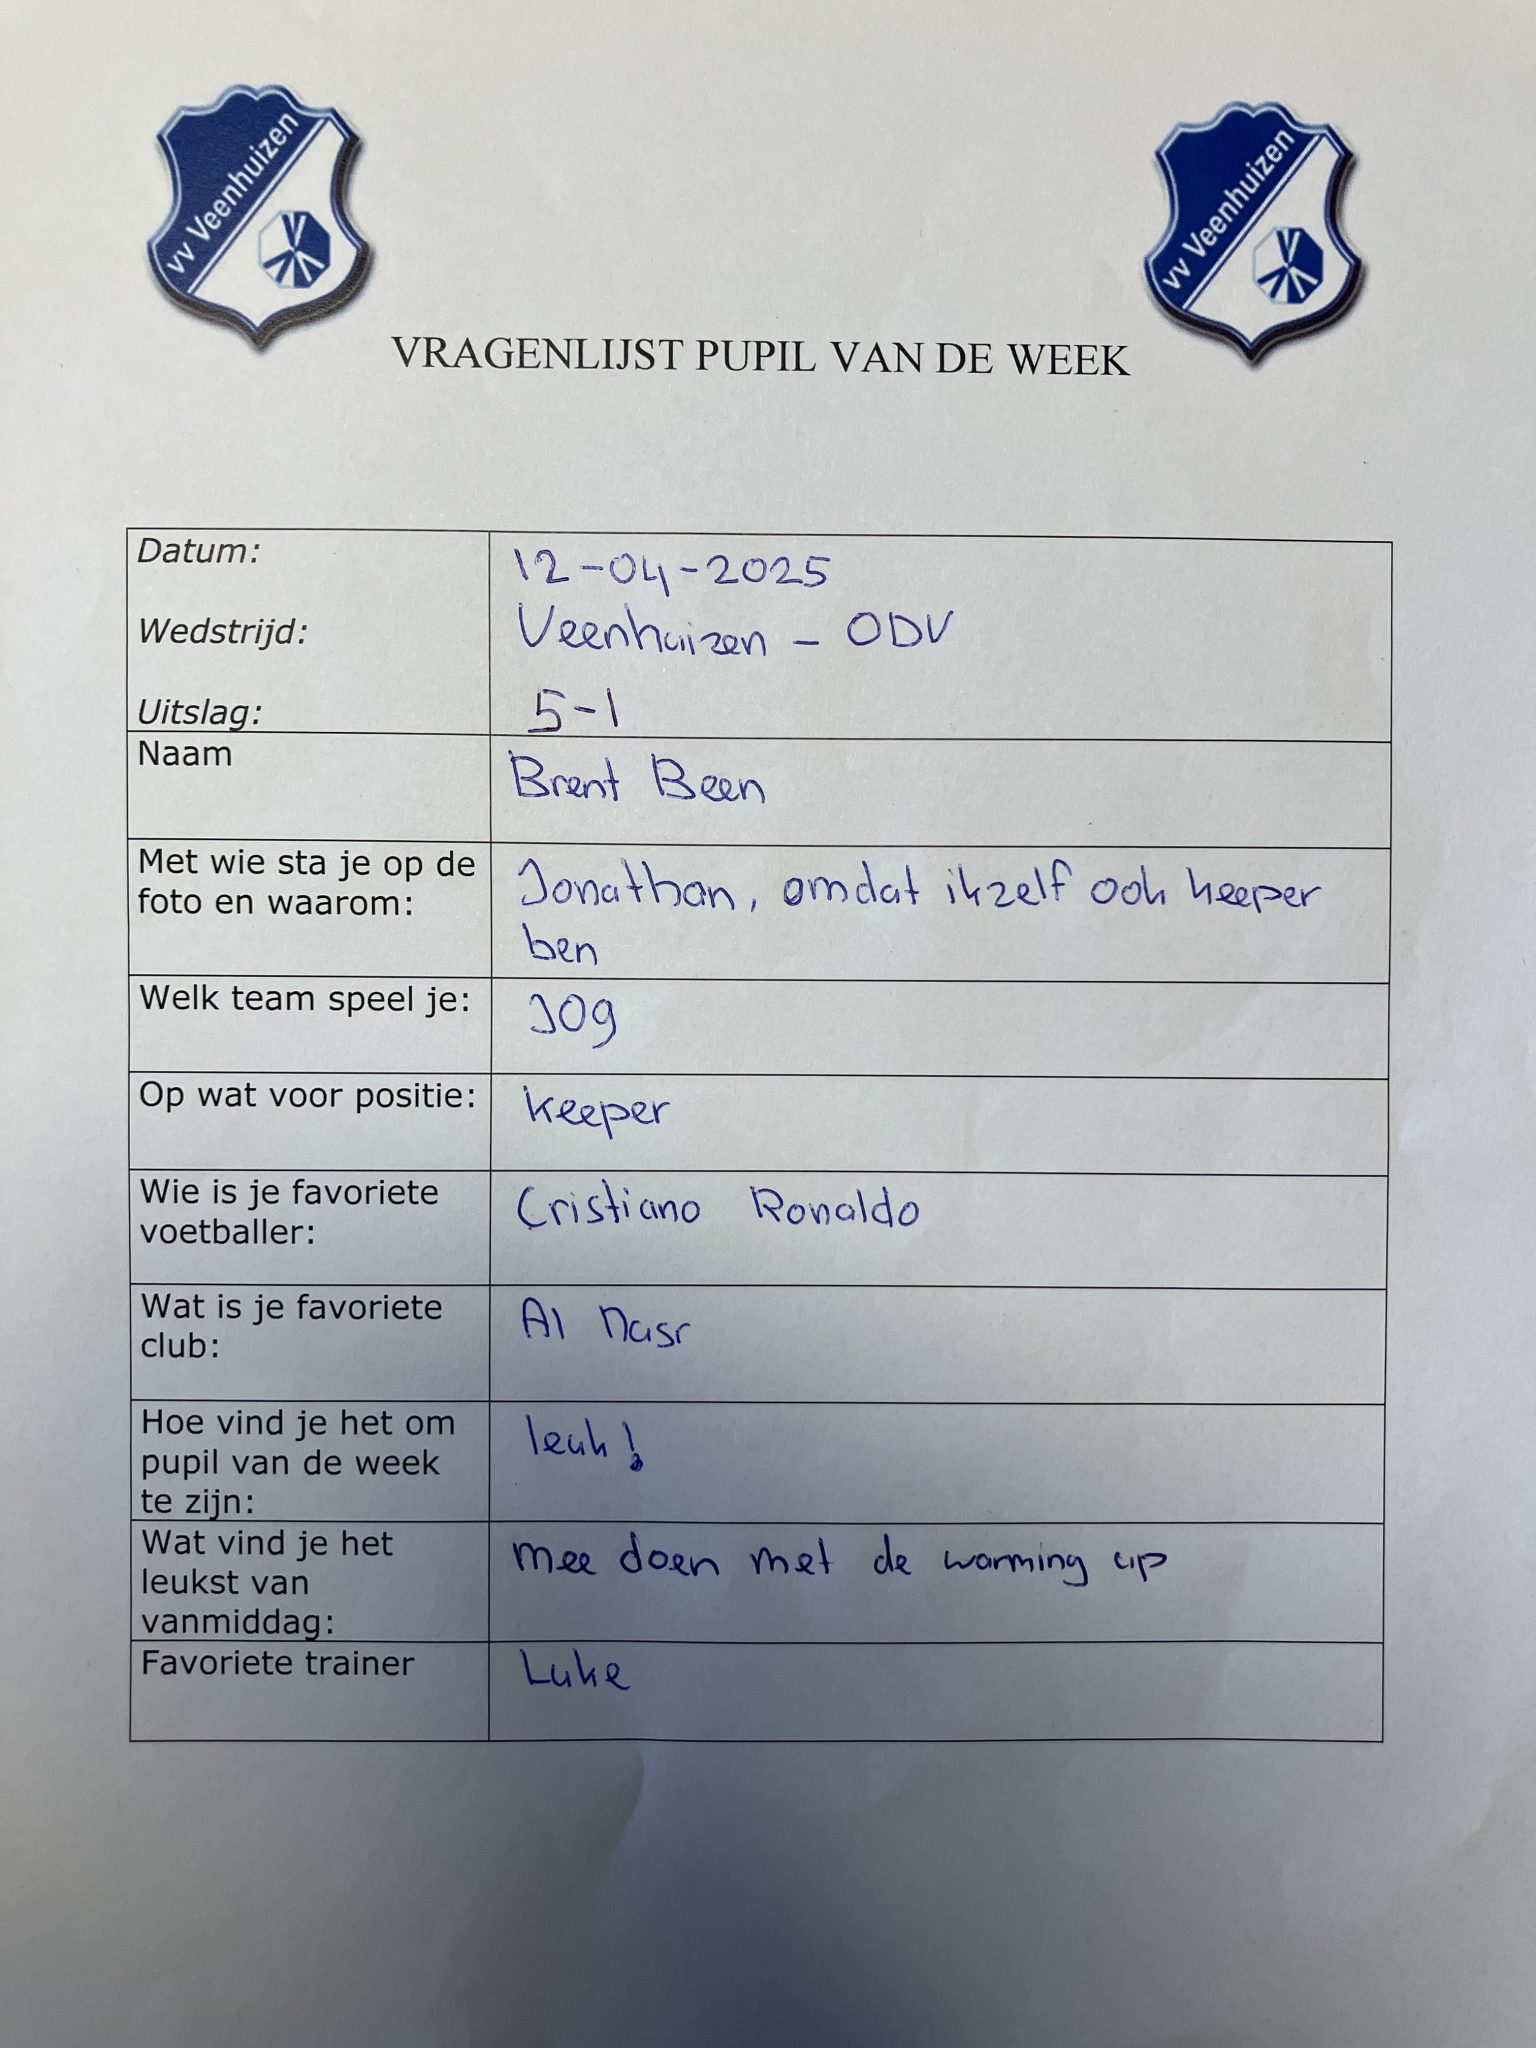 vv Veenhuizen
vv Veenhuizen
VRAGENLIJST PUPIL VAN DE WEEK
Datum: 12-04-2025
Wedstrijd: Veenhuizen - ODV
Uitslag: 5-1
Naam Brent Been
Met wie sta je op de Jonathan, omdat ikzelf ook keeper
foto en waarom: ben
Welk team speel je: JO9
Op wat voor positie: keeper
Wie is je favoriete Cristiano Ronaldo
voetballer:
Wat is je favoriete Al Nasr
club:
Hoe vind je het om leuk!
pupil van de week
te zijn:
Wat vind je het mee doen met de warming up
leukst van
vanmiddag:
Favoriete trainer Luke